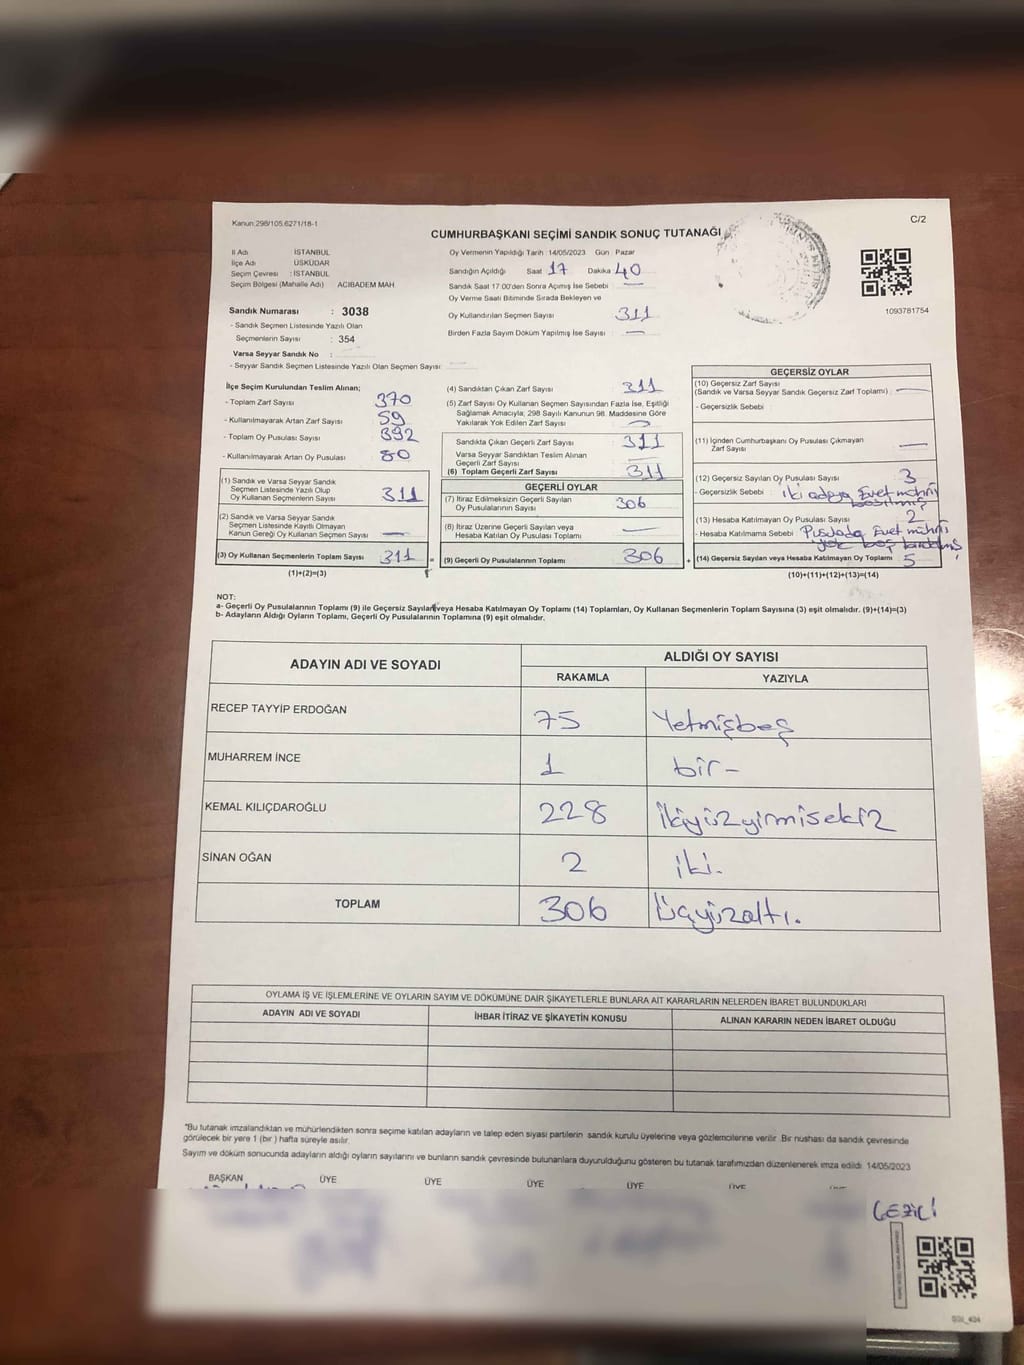 Kanun:298/105.6271/18-1
C/2
CUMHURBAŞKANI SEÇİMİ SANDIK SONUÇ TUTANAĞI
İl Adı : İSTANBUL
İlçe Adı : ÜSKÜDAR
Seçim Çevresi : İSTANBUL
Seçim Bölgesi (Mahalle Adı) ACIBADEM MAH
Sandık Numarası : 3038
- Sandık Seçmen Listesinde Yazılı Olan
Seçmenlerin Sayısı : 354
Varsa Seyyar Sandık No :
- Seyyar Sandık Seçmen Listesinde Yazılı Olan Seçmen Sayısı
Oy Vermenin Yapıldığı Tarih 14/05/2023 Gün : Pazar
Sandığın Açıldığı Saat 17 Dakika 40
Sandık Saat 17:00'den Sonra Açımış İse Sebebi : —
Oy Verme Saati Bitiminde Sırada Bekleyen ve
Oy Kullandırılan Seçmen Sayısı : 311
Birden Fazla Sayım Döküm Yapılmış İse Sayısı : —
1093781754
İlçe Seçim Kurulundan Teslim Alınan;
- Toplam Zarf Sayısı 370
- Kullanılmayarak Artan Zarf Sayısı 59
- Toplam Oy Pusulası Sayısı 392
- Kullanılmayarak Artan Oy Pusulası 80
(1) Sandık ve Varsa Seyyar Sandık
Seçmen Listesinde Yazılı Olup
Oy Kullanan Seçmenlerin Sayısı 311
(2) Sandık ve Varsa Seyyar Sandık
Seçmen Listesinde Kayıtlı Olmayan
Kanun Gereği Oy Kullanan Seçmen Sayısı —
(3) Oy Kullanan Seçmenlerin Toplam Sayısı 311 =
(1)+(2)=(3)
(4) Sandıktan Çıkan Zarf Sayısı 311
(5) Zarf Sayısı Oy Kullanan Seçmen Sayısından Fazla İse, Eşitliği
Sağlamak Amacıyla; 298 Sayılı Kanunun 98. Maddesine Göre
Yakılarak Yok Edilen Zarf Sayısı —
Sandıkta Çıkan Geçerli Zarf Sayısı 311
Varsa Seyyar Sandıktan Teslim Alınan
Geçerli Zarf Sayısı
(6) Toplam Geçerli Zarf Sayısı 311
GEÇERLİ OYLAR
(7) İtiraz Edilmeksizin Geçerli Sayılan
Oy Pusulalarının Sayısı 306
(8) İtiraz Üzerine Geçerli Sayılan veya
Hesaba Katılan Oy Pusulası Toplamı —
(9) Geçerli Oy Pusulalarının Toplamı 306 +
GEÇERSİZ OYLAR
(10) Geçersiz Zarf Sayısı
(Sandık ve Varsa Seyyar Sandık Geçersiz Zarf Toplamı) : —
- Geçersizlik Sebebi :
(11) İçinden Cumhurbaşkanı Oy Pusulası Çıkmayan
Zarf Sayısı —
(12) Geçersiz Sayılan Oy Pusulası Sayısı 3
- Geçersizlik Sebebi : İki adaya Evet mührü
basılmış
(13) Hesaba Katılmayan Oy Pusulası Sayısı 2
- Hesaba Katılmama Sebebi Pusulada Evet mührü
yok boş
(14) Geçersiz Sayılan veya Hesaba Katılmayan Oy Toplamı 5
(10)+(11)+(12)+(13)=(14)
NOT:
a- Geçerli Oy Pusulalarının Toplamı (9) ile Geçersiz Sayılan veya Hesaba Katılmayan Oy Toplamı (14) Toplamları, Oy Kullanan Seçmenlerin Toplam Sayısına (3) eşit olmalıdır. (9)+(14)=(3)
b- Adayların Aldığı Oyların Toplamı, Geçerli Oy Pusulalarının Toplamına (9) eşit olmalıdır.
ADAYIN ADI VE SOYADI
ALDIĞI OY SAYISI
RAKAMLA YAZIYLA
RECEP TAYYİP ERDOĞAN 75 Yetmişbeş
MUHARREM İNCE 1 bir-
KEMAL KILIÇDAROĞLU 228 İkiyüzyirmisekiz
SİNAN OĞAN 2 iki.
TOPLAM 306 Üçyüzaltı.
OYLAMA İŞ VE İŞLEMLERİNE VE OYLARIN SAYIM VE DÖKÜMÜNE DAİR ŞİKAYETLERLE BUNLARA AİT KARARLARIN NELERDEN İBARET BULUNDUKLARI
ADAYIN ADI VE SOYADI İHBAR İTİRAZ VE ŞİKAYETİN KONUSU ALINAN KARARIN NEDEN İBARET OLDUĞU
*Bu tutanak imzalandıktan ve mühürlendikten sonra seçime katılan adayların ve talep eden siyasi partilerin sandık kurulu üyelerine veya gözlemcilerine verilir. Bir nüshası da sandık çevresinde
görülecek bir yere 1 (bir ) hafta süreyle asılır.
Sayım ve döküm sonucunda adayların aldığı oyların sayılarını ve bunların sandık çevresinde bulunanlara duyurulduğunu gösteren bu tutanak tarafımızdan düzenlenerek imza edildi. 14/05/2023
BAŞKAN ÜYE ÜYE ÜYE ÜYE ÜYE
GEZİCİ